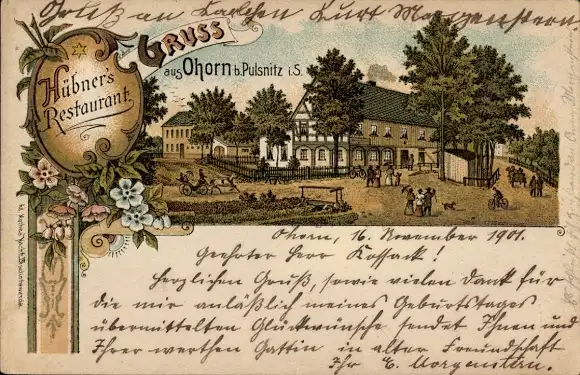 Gruß an Karlchen Kurt Morgenstern.
Gruss
aus Ohorn b. Pulsnitz i.S.
Hübner's
Restaurant.
Ohorn, 16. November 1901.
Geehrter Herr Kossack!
Herzlichen Gruß, sowie vielen Dank für
die mir anläßlich meines Geburtstages
übermittelten Glückwünsche sendet Ihnen und
Ihrer werthen Gattin in alter Freundschaft
Ihr E. Morgenstern.